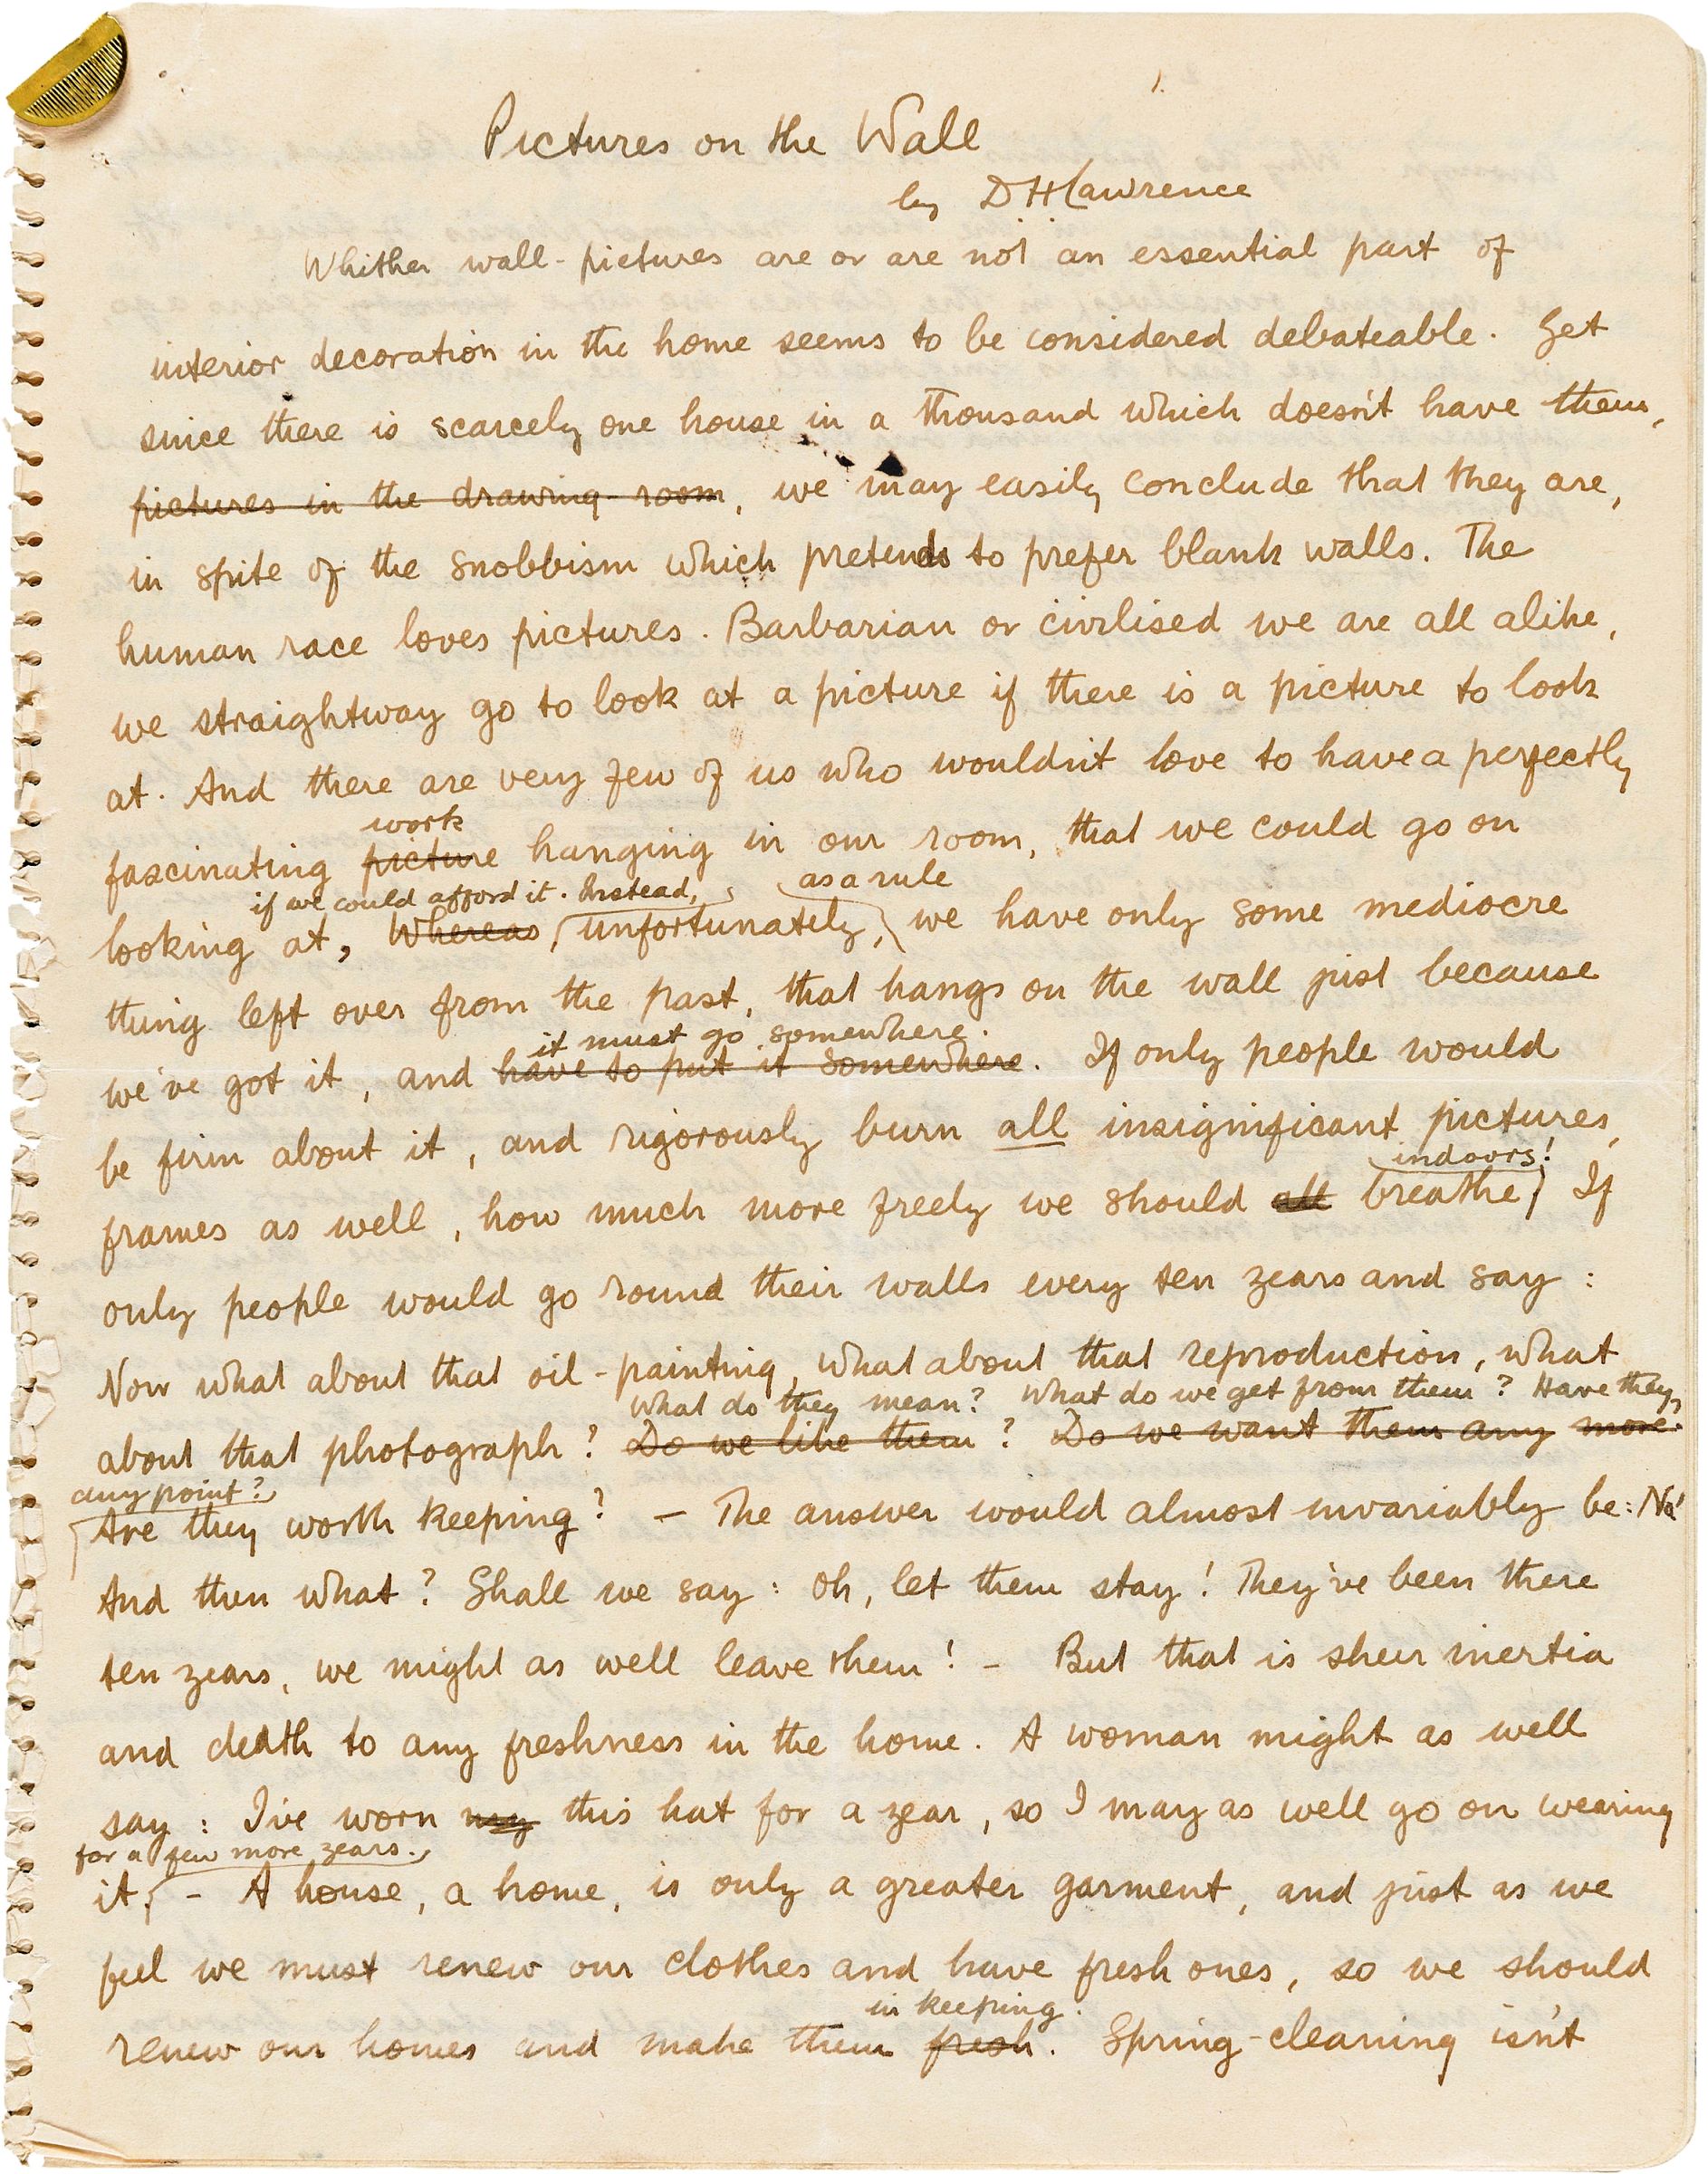 1.
Pictures on the Wall
by D H Lawrence
Whither wall-pictures are or are not an essential part of
interior decoration in the home seems to be considered debateable. Yet
since there is scarcely one house in a thousand which doesn't have them,
pictures in the drawing-room, we may easily conclude that they are,
in spite of the snobbism which pretends to prefer blank walls. The
human race loves pictures. Barbarian or civilised we are all alike,
we straightway go to look at a picture if there is a picture to look
at. And there are very few of us who wouldn't love to have a perfectly
work
fascinating picture hanging in our room, that we could go on
if we could afford it. Instead, as a rule
looking at, Whereas, unfortunately, we have only some mediocre
thing left over from the past, that hangs on the wall just because
it must go somewhere.
we've got it, and have to put it somewhere. If only people would
be firm about it, and rigorously burn all insignificant pictures,
indoors!
frames as well, how much more freely we should all breathe, If
only people would go round their walls every ten years and say:
Now what about that oil-painting, what about that reproduction, what
What do they mean? What do we get from them? Have they
about that photograph? Do we like them? Do we want them any more.
any point?
Are they worth keeping? — The answer would almost invariably be: No!
And then what? Shall we say: Oh, let them stay! They've been there
ten years, we might as well leave them! — But that is sheer inertia
and death to any freshness in the home. A woman might as well
say: I've worn my this hat for a year, so I may as well go on wearing
for a few more years.
it, - A house, a home, is only a greater garment, and just as we
feel we must renew our clothes and have fresh ones, so we should
in keeping.
renew our homes and make them fresh. Spring-cleaning isn't